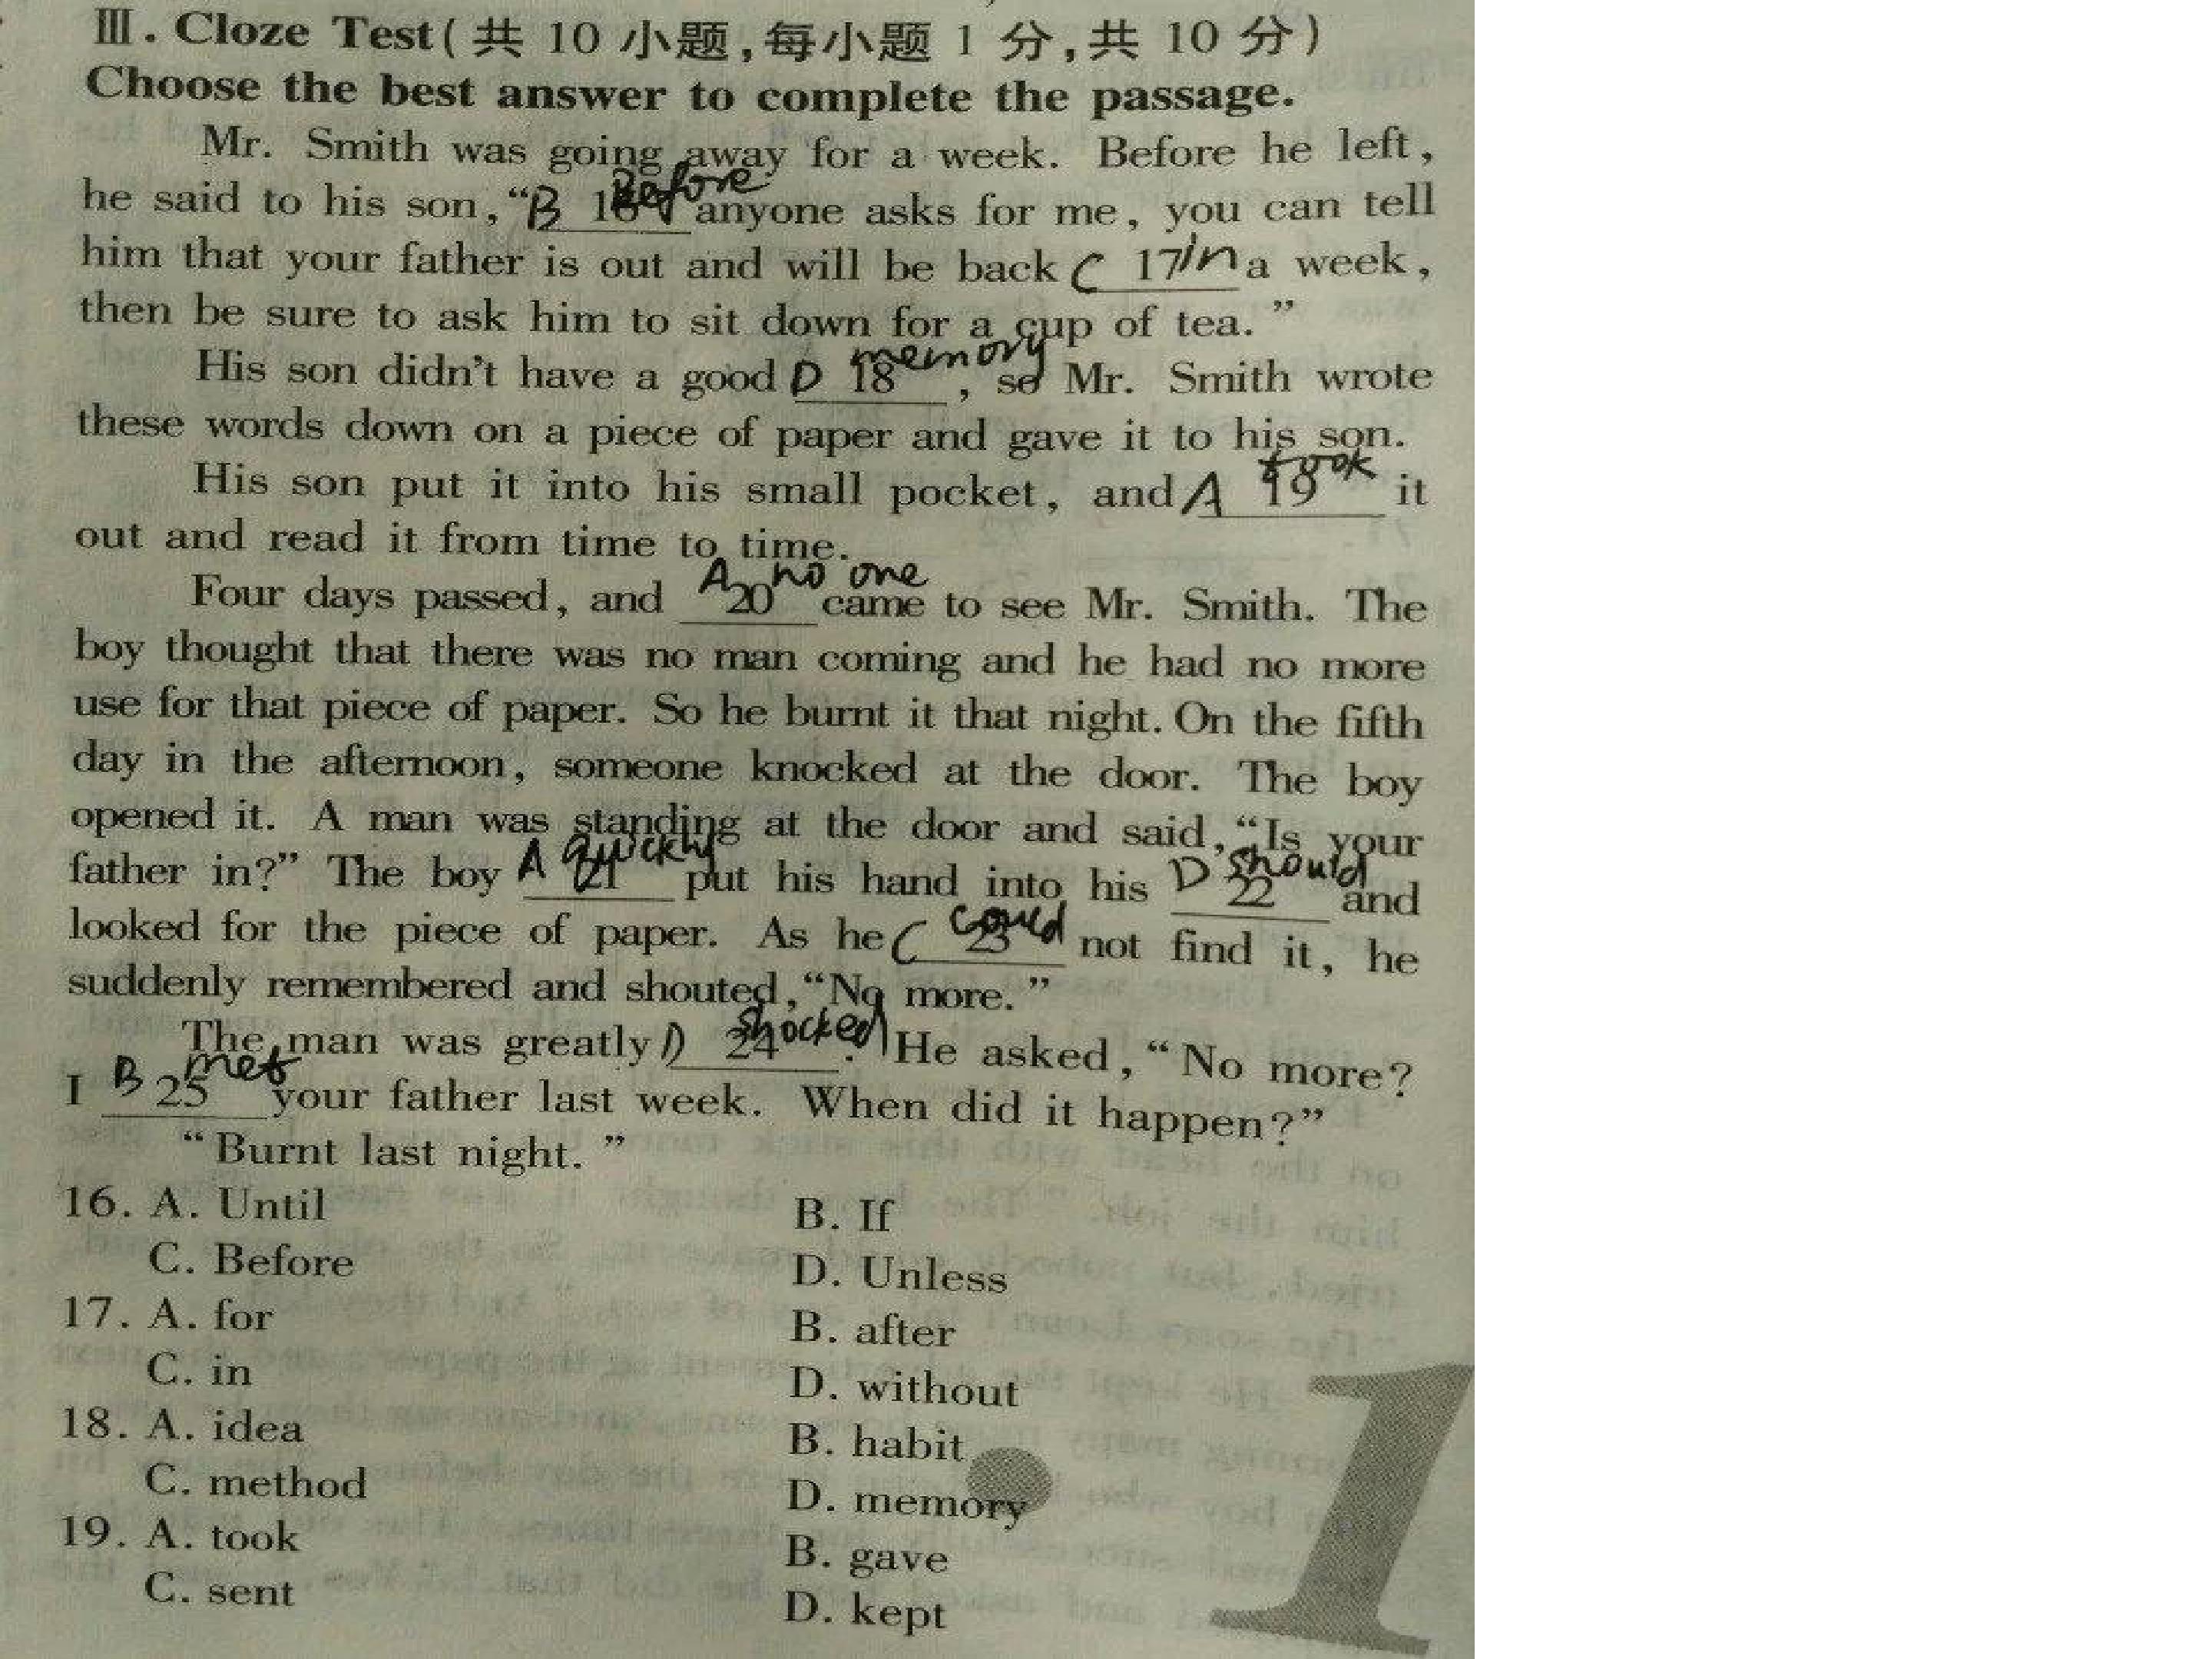 Ⅲ. Cloze Test(共 10 小题,每小题 1 分,共 10 分)
Choose the best answer to complete the passage.
Mr. Smith was going away for a week. Before he left,
Before
he said to his son,“B 16 anyone asks for me, you can tell
him that your father is out and will be back C 17 in a week,
then be sure to ask him to sit down for a cup of tea.”
memory
His son didn't have a good D 18, so Mr. Smith wrote
these words down on a piece of paper and gave it to his son.
took
His son put it into his small pocket, and A 19 it
out and read it from time to time.
A no one
Four days passed, and 20 came to see Mr. Smith. The
boy thought that there was no man coming and he had no more
use for that piece of paper. So he burnt it that night. On the fifth
day in the afternoon, someone knocked at the door. The boy
opened it. A man was standing at the door and said,“Is your
quickly should
father in?” The boy A 21 put his hand into his D 22 and
could
looked for the piece of paper. As he C 23 not find it, he
suddenly remembered and shouted,“No more.”
shocked
The man was greatly D 24. He asked,“No more?
met
I B 25 your father last week. When did it happen?”
“Burnt last night.”
16. A. Until B. If
C. Before D. Unless
17. A. for B. after
C. in D. without
18. A. idea B. habit
C. method D. memory
19. A. took B. gave
C. sent D. kept
1